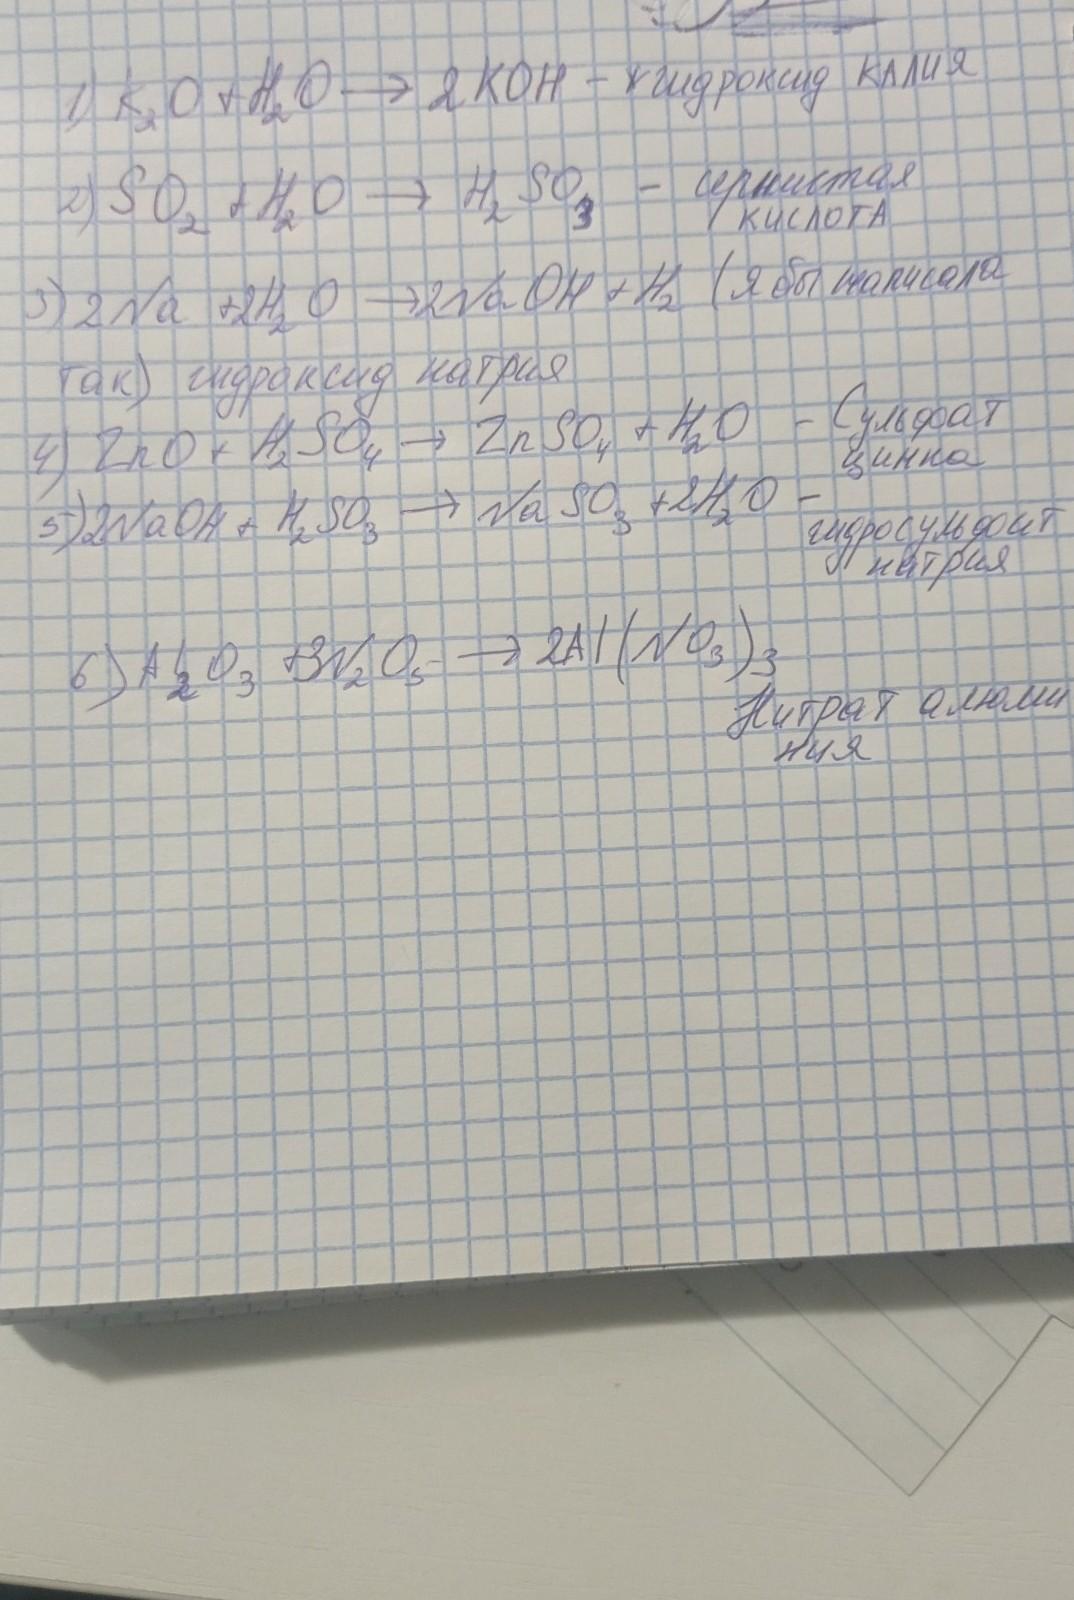 1) K₂O + H₂O → 2KOH – гидроксид калия
2) SO₂ + H₂O → H₂SO₃ – сернистая
кислота
3) 2Na + 2H₂O → 2NaOH + H₂ (я бы написала
так) гидроксид натрия
4) ZnO + H₂SO₄ → ZnSO₄ + H₂O – Сульфат
цинка
5) 2NaOH + H₂SO₃ → NaSO₃ + 2H₂O –
гидросульфит
натрия
6) Al₂O₃ + 3N₂O₅ → 2Al(NO₃)₃
Нитрат алюми
ния